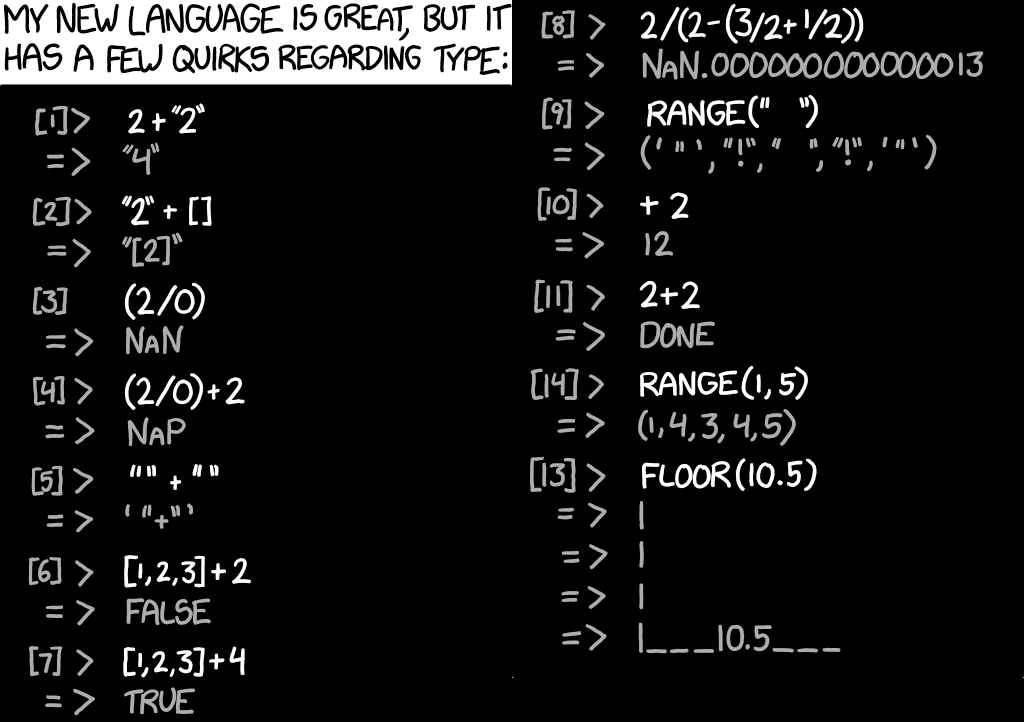 MY NEW LANGUAGE IS GREAT, BUT IT
HAS A FEW QUIRKS REGARDING TYPE:
[1]> 2+"2"
=> "4"
[2]> "2" + []
=> "[2]"
[3] (2/0)
=> NaN
[4]> (2/0)+2
=> NaP
[5]> "" + ""
=> ' "+" '
[6]> [1,2,3]+2
=> FALSE
[7]> [1,2,3]+4
=> TRUE
[8]> 2/(2-(3/2+1/2))
=> NaN.000000000000013
[9]> RANGE(" ")
=> (' " ', "!", " ", "!", ' " ')
[10]> + 2
=> 12
[11]> 2+2
=> DONE
[14]> RANGE(1,5)
=> (1,4,3,4,5)
[13]> FLOOR(10.5)
=> |
=> |
=> |
=> |___10.5___